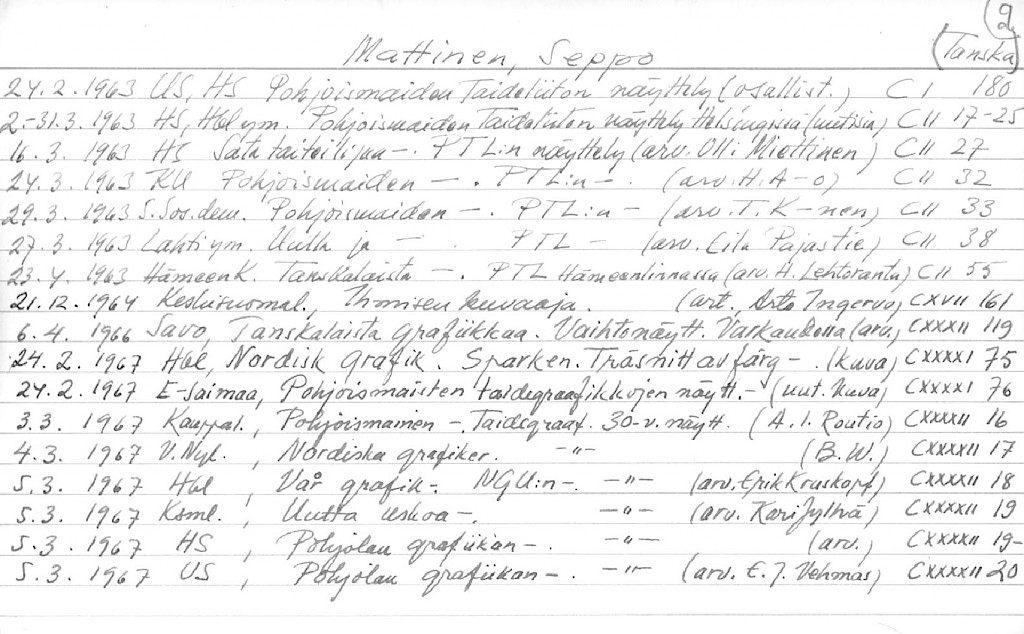 2
Mattinen, Seppo (Tanska)
24.2.1963 US, HS Pohjoismaiden Taideliiton näyttely (osallist.) C I 180
2.-31.3.1963 HS, Hbl ym. Pohjoismaiden Taideliiton näyttely Helsingissä (uutisia) CII 17-25
16.3.1963 HS Sata taiteilijaa -. PTL:n näyttely (arv. Olli Miettinen) CII 27
24.3.1963 KU Pohjoismaiden -. PTL:n -. (arv. H.A-o) CII 32
29.3.1963 S.Sos.dem. Pohjoismaiden -. PTL:n - (arv. T.K-nen) CII 33
27.3.1963 Lahti ym. Uutta ja - . PTL - (arv. Eila Pajastie) CII 38
23.4.1963 HämeenK. Tanskalaista -. PTL Hämeenlinnassa (arv. H. Lehtoranta) CII 55
21.12.1964 Keskisuomal., Ihmisen kuvaaja. (art. Arto Ingervo) CXVII 161
6.4.1966 Savo, Tanskalaista grafiikkaa. Vaihtonäytt. Varkaudessa (arv.) CXXXII 119
24.2.1967 Hbl, Nordisk grafik. Sparken. Träsnitt av färg - (kuva) CXXXXI 75
24.2.1967 E-Saimaa, Pohjoismaisten taidegraafikkojen näytt.- (uut. kuva) CXXXXI 76
3.3.1967 Kauppal., Pohjoismainen -. Taidegraaf. 30-v. näytt. (A.I. Routio) CXXXXII 16
4.3.1967 V.Nyl., Nordiska grafiker. -"- (B.W.) CXXXXII 17
5.3.1967 Hbl, Vår grafik -. NGU:n -. -"- (arv. Erik Kruskopf) CXXXXII 18
5.3.1967 Ksml., Uutta uskoa -. -"- (arv. Kari Jylhä) CXXXXII 19
5.3.1967 HS, Pohjolan grafiikan -. -"- (arv.) CXXXXII 19-
5.3.1967 US, Pohjolan grafiikan -. -"- (arv. E.J. Vehmas) CXXXXII 20